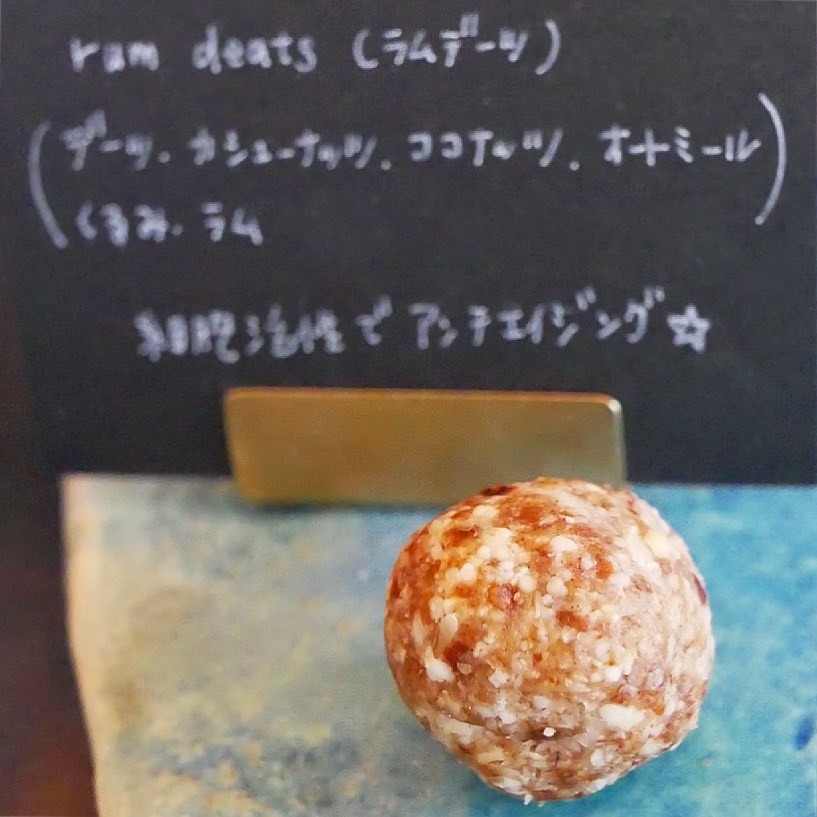 rum deats (ラムデーツ)
(デーツ. カシューナッツ. ココナッツ. オートミール
くるみ. ラム)
細胞活性でアンチエイジング☆